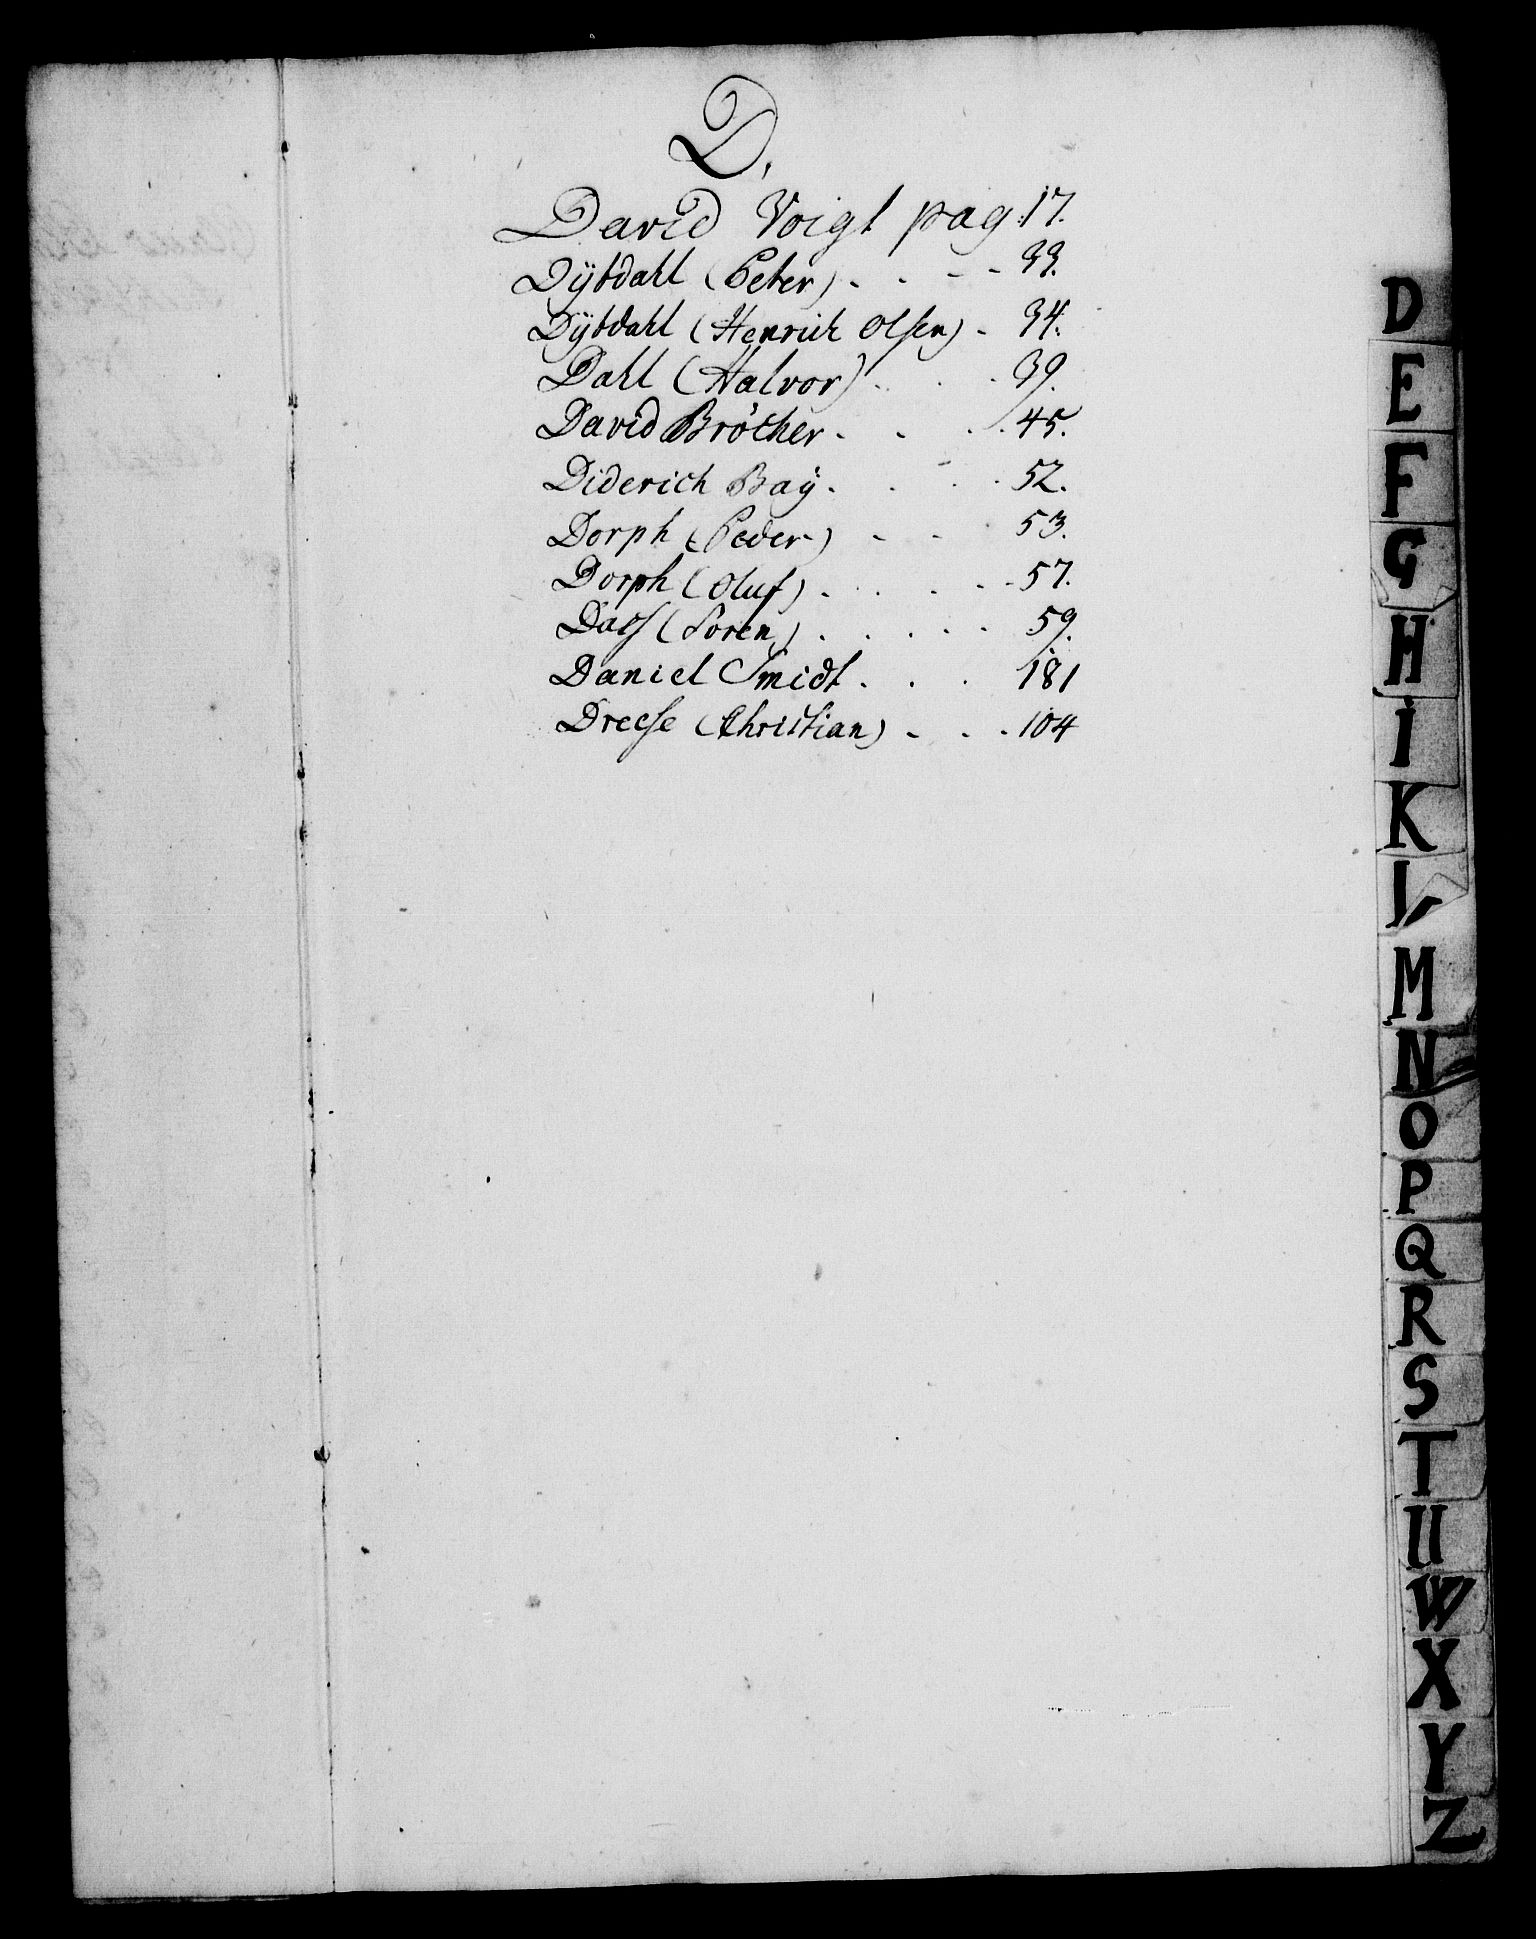 D.
David Voigt pag. 17.
Dÿbdahl (Peter) . . - - 33.
Dÿbdahl (Henrich Olsen) - 34.
Dall (Halvor) . . . 39.
David Bröcher . . . 45.
Diderich Baÿ . . . . 52.
Dorph (Peder) - - . 53.
Dorph (Oluf) . . . - - 57.
Dass (Soren) . . . . . 59.
Daniel Smidt . . . 181
Dreese (Christian) . . . 104
D
E
F
G
H
I
K
L
M
N
O
P
Q
R
S
T
U
W
X
Y
Z